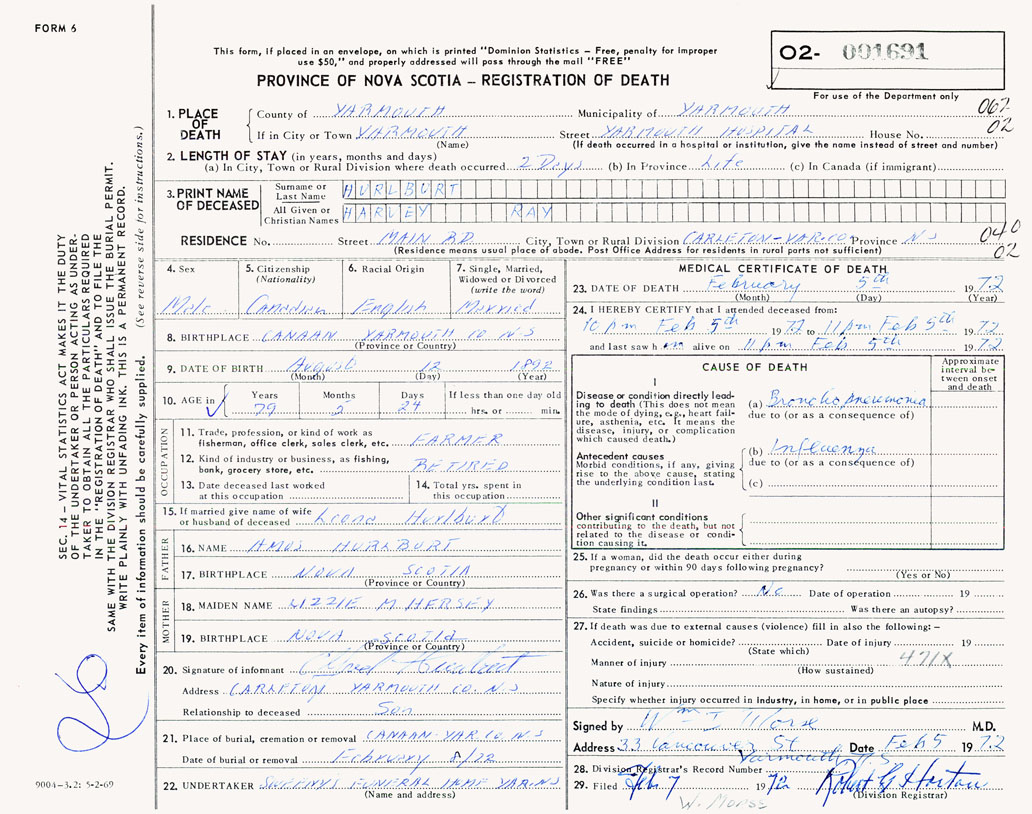 FORM 6
This form, if placed in an envelope, on which is printed "Dominion Statistics – Free, penalty for improper
use $50," and properly addressed will pass through the mail "FREE"
PROVINCE OF NOVA SCOTIA – REGISTRATION OF DEATH
02- 001691
For use of the Department only
067-
02
1. PLACE OF DEATH
County of YARMOUTH Municipality of YARMOUTH
If in City or Town YARMOUTH Street YARMOUTH HOSPITAL House No.
(Name) (If death occurred in a hospital or institution, give the name instead of street and number)
2. LENGTH OF STAY (in years, months and days)
(a) In City, Town or Rural Division where death occurred 2 Days (b) In Province Life (c) In Canada (if immigrant)
3. PRINT NAME OF DECEASED
Surname or Last Name HURLBURT
All Given or Christian Names HARLEY RAY
RESIDENCE No. Street MAIN RD. City, Town or Rural Division CARLETON-YAR.CO. Province NS
(Residence means usual place of abode. Post Office Address for residents in rural parts not sufficient)
040
02
4. Sex
Male
5. Citizenship (Nationality)
Canadian
6. Racial Origin
English
7. Single, Married, Widowed or Divorced (write the word)
Married
8. BIRTHPLACE CANAAN YARMOUTH CO. N.S
(Province or Country)
9. DATE OF BIRTH August 12 1892
(Month) (Day) (Year)
10. AGE in Years Months Days If less than one day old
79 2 24 hrs. or min.
OCCUPATION
11. Trade, profession, or kind of work as fisherman, office clerk, sales clerk, etc. FARMER
12. Kind of industry or business, as fishing, bank, grocery store, etc. RETIRED
13. Date deceased last worked at this occupation
14. Total yrs. spent in this occupation
15. If married give name of wife or husband of deceased Leona Hurlburt
FATHER
16. NAME AMOS HURLBURT
17. BIRTHPLACE NOVA SCOTIA
(Province or Country)
MOTHER
18. MAIDEN NAME LIZZIE M HERSEY
19. BIRTHPLACE NOVA SCOTIA
(Province or Country)
20. Signature of informant Hurlburt
Address CARLETON YARMOUTH CO. N.S
Relationship to deceased Son
21. Place of burial, cremation or removal CANAAN-YAR.CO.N.S
Date of burial or removal February 8/72
22. UNDERTAKER SWEENY'S FUNERAL HOME YAR.NS
(Name and address)
MEDICAL CERTIFICATE OF DEATH
23. DATE OF DEATH February 5th 1972
(Month) (Day) (Year)
24. I HEREBY CERTIFY that I attended deceased from:
10 pm Feb 5th 1972 to 11 pm Feb 5th 1972
and last saw him alive on 11 pm Feb 5th 1972
CAUSE OF DEATH
Approximate interval between onset and death
I
Disease or condition directly leading to death (This does not mean the mode of dying, e.g., heart failure, asthenia, etc. It means the disease, injury, or complication which caused death.)
(a) Bronchopneumonia
due to (or as a consequence of)
Antecedent causes
Morbid conditions, if any, giving rise to the above cause, stating the underlying condition last.
(b) Influenza
due to (or as a consequence of)
(c)
II
Other significant conditions
contributing to the death, but not related to the disease or condition causing it.
25. If a woman, did the death occur either during pregnancy or within 90 days following pregnancy?
(Yes or No)
26. Was there a surgical operation? No Date of operation 19
State findings Was there an autopsy?
27. If death was due to external causes (violence) fill in also the following:–
Accident, suicide or homicide? Date of injury 19
(State which)
Manner of injury 471X
(How sustained)
Nature of injury
Specify whether injury occurred in industry, in home, or in public place
Signed by Wm I Morse M.D.
Address 33 Vancouver St Date Feb 5 1972
Yarmouth N.S.
28. Division Registrar's Record Number
29. Filed Feb 7 1972 Robert G Horton
(Division Registrar)
W. Morse
SEC. 14 – VITAL STATISTICS ACT MAKES IT THE DUTY
OF THE UNDERTAKER OR PERSON ACTING AS UNDER-
TAKER TO OBTAIN ALL THE PARTICULARS REQUIRED
IN THE "REGISTRATION OF DEATH" AND TO FILE THE
SAME WITH THE DIVISION REGISTRAR WHO SHALL ISSUE THE BURIAL PERMIT.
WRITE PLAINLY WITH UNFADING INK. THIS IS A PERMANENT RECORD.
Every item of information should be carefully supplied. (See reverse side for instructions.)
9004–3.2: 5-2-69